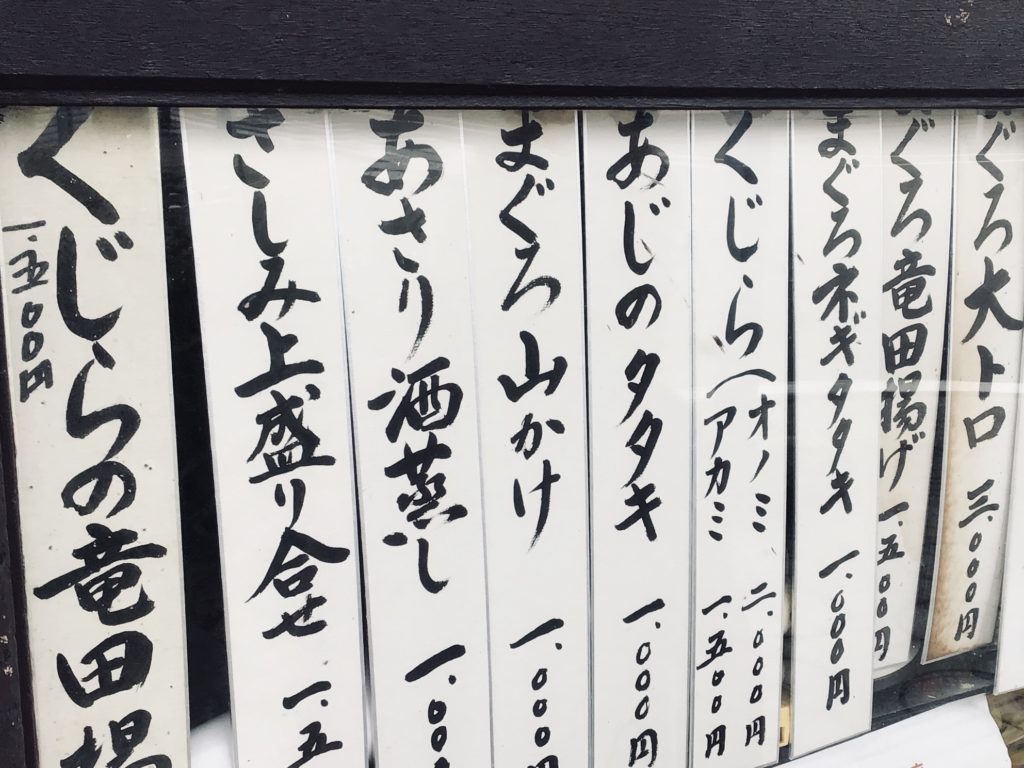 ぐろ大トロ 三.〇〇〇円
ぐろ竜田揚げ 一.五〇〇円
まぐろネギタタキ 一.〇〇〇円
くじら(オノミ 二.〇〇〇円
アカミ 一.五〇〇円
あじのタタキ 一.〇〇〇円
まぐろ山かけ 一.〇〇〇円
あさり酒蒸し 一.〇〇
さしみ上盛り合せ 一.五
くじらの竜田揚
一.五〇〇円